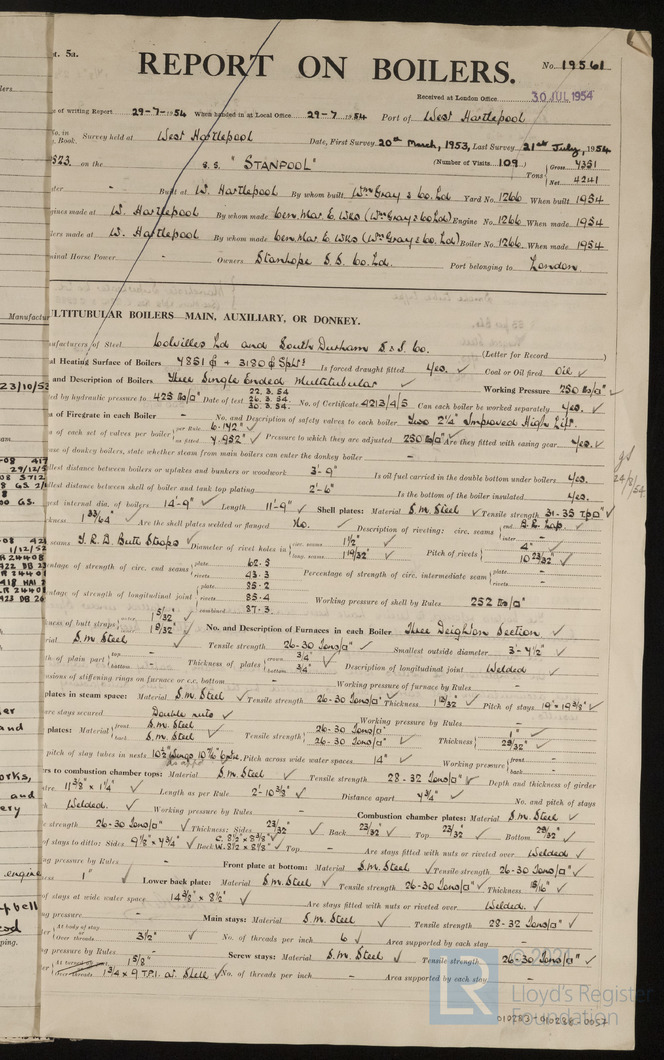 REPORT ON BOILERS.
No. 19561
Received at London Office 30 JUL 1954
of writing Report 29-7-1954 When handed in at Local Office 29-7-1954 Port of West Hartlepool
No. in Book. Survey held at West Hartlepool Date, First Survey 20th March, 1953, Last Survey 21st July, 1954
on the S.S. "STANPOOL" (Number of Visits 109) Tons Gross 4351 Net 4241
Built at W. Hartlepool By whom built Wm Gray & Co. Ld Yard No. 1266 When built 1954
made at W. Hartlepool By whom made Cen. Mar. E. Wks (Wm Gray & Co Ld) Engine No. 1266 When made 1954
made at W. Hartlepool By whom made Cen. Mar. E. Wks (Wm Gray & Co. Ld) Boiler No. 1266 When made 1954
Horse Power - Owners Stanhope S.S. Co. Ld. Port belonging to London
MULTITUBULAR BOILERS MAIN, AUXILIARY, OR DONKEY.
of Steel Colvilles Ld and South Durham S. & I. Co. (Letter for Record )
Heating Surface of Boilers 4851 + 3180 Is forced draught fitted Yes. ✓ Coal or Oil fired Oil ✓
and Description of Boilers Three Single Ended Multitubular ✓ Working Pressure 250 lbs/□" ✓
by hydraulic pressure to 425 lbs/□" Date of test 22.3.54 26.3.54 30.3.54 No. of Certificate 4213/4/5 Can each boiler be worked separately Yes. ✓
of Firegrate in each Boiler - No. and Description of safety valves to each boiler Two 2¼" Improved High Lift.
of each set of valves per boiler per Rule 6.142" as fitted 7.952" ✓ Pressure to which they are adjusted 250 lbs/□" ✓ Are they fitted with easing gear Yes. ✓
of donkey boilers, state whether steam from main boilers can enter the donkey boiler -
distance between boilers or uptakes and bunkers or woodwork 3'-9" Is oil fuel carried in the double bottom under boilers Yes.
distance between shell of boiler and tank top plating 2'-6" Is the bottom of the boiler insulated Yes.
internal dia. of boilers 14'-9" ✓ Length 11'-9" ✓ Shell plates: Material S.M. Steel ✓ Tensile strength 31-35 Tons/□" ✓
1 33/64" ✓ Are the shell plates welded or flanged No. Description of riveting: circ. seams end D.R. Lap. ✓ inter -
T.R.D. Butt Straps ✓ Diameter of rivet holes in circ. seams 1½" long. seams 1 19/32" ✓ Pitch of rivets 4" 10 23/32" ✓
of strength of circ. end seams plate 62.5 rivets 43.3 Percentage of strength of circ. intermediate seam plate - rivets -
of strength of longitudinal joint plate 85.2 rivets 85.4 combined 87.3 Working pressure of shell by Rules 252 lbs/□"
of butt straps 1 5/32" 1 9/32" ✓ No. and Description of Furnaces in each Boiler Three Deighton Section ✓
S.M. Steel Tensile strength 26-30 Tons/□" ✓ Smallest outside diameter 3'-7½" ✓
of plain part top - bottom - Thickness of plates crown ¾" bottom ¾" ✓ Description of longitudinal joint Welded ✓
of stiffening rings on furnace or c.c. bottom - Working pressure of furnace by Rules -
plates in steam space: Material S.M. Steel ✓ Tensile strength 26-30 Tons/□" ✓ Thickness 1 9/32" ✓ Pitch of stays 19" × 19 3/8" ✓
stays secured Double nuts ✓ Working pressure by Rules -
plates: Material front S.M. Steel back S.M. Steel ✓ Tensile strength 26-30 Tons/□" 26-30 Tons/□" ✓ Thickness 1" ✓ 29/32" ✓
pitch of stay tubes in nests Pitch across wide water spaces 14" ✓ Working pressure front - back -
to combustion chamber tops: Material S.M. Steel ✓ Tensile strength 28-32 Tons/□" ✓ Depth and thickness of girder
11 3/8" × 1¼" ✓ Length as per Rule 2'-10 3/8" ✓ Distance apart 9¾" ✓ No. and pitch of stays
Welded. ✓ Working pressure by Rules - Combustion chamber plates: Material S.M. Steel ✓
strength 26-30 Tons/□" ✓ Thickness: Sides 23/32" ✓ Back 23/32" ✓ Top 23/32" ✓ Bottom 29/32" ✓
of stays to ditto: Sides 9 1/8" × 9¾" ✓ Back C. 8½" × 8 3/8" ✓ W. 8½" × 8 7/8" ✓ Top - Are stays fitted with nuts or riveted over Welded ✓
pressure by Rules - Front plate at bottom: Material S.M. Steel ✓ Tensile strength 26-30 Tons/□" ✓
1" ✓ Lower back plate: Material S.M. Steel ✓ Tensile strength 26-30 Tons/□" ✓ Thickness 15/16" ✓
of stays at wide water space 14 3/8" × 8½" ✓ Are stays fitted with nuts or riveted over Welded. ✓
pressure - Main stays: Material S.M. Steel ✓ Tensile strength 28-32 Tons/□" ✓
At body of stay Over threads 3½" ✓ No. of threads per inch 6 ✓ Area supported by each stay -
pressure by Rules - Screw stays: Material S.M. Steel ✓ Tensile strength 26-30 Tons/□" ✓
At turned off part Over threads 1 5/8" 1¾ × 9 T.P.I. at Shell ✓ No. of threads per inch - Area supported by each stay -
© 2021
LR
Lloyd's Register
Foundation
010283-010288-0057